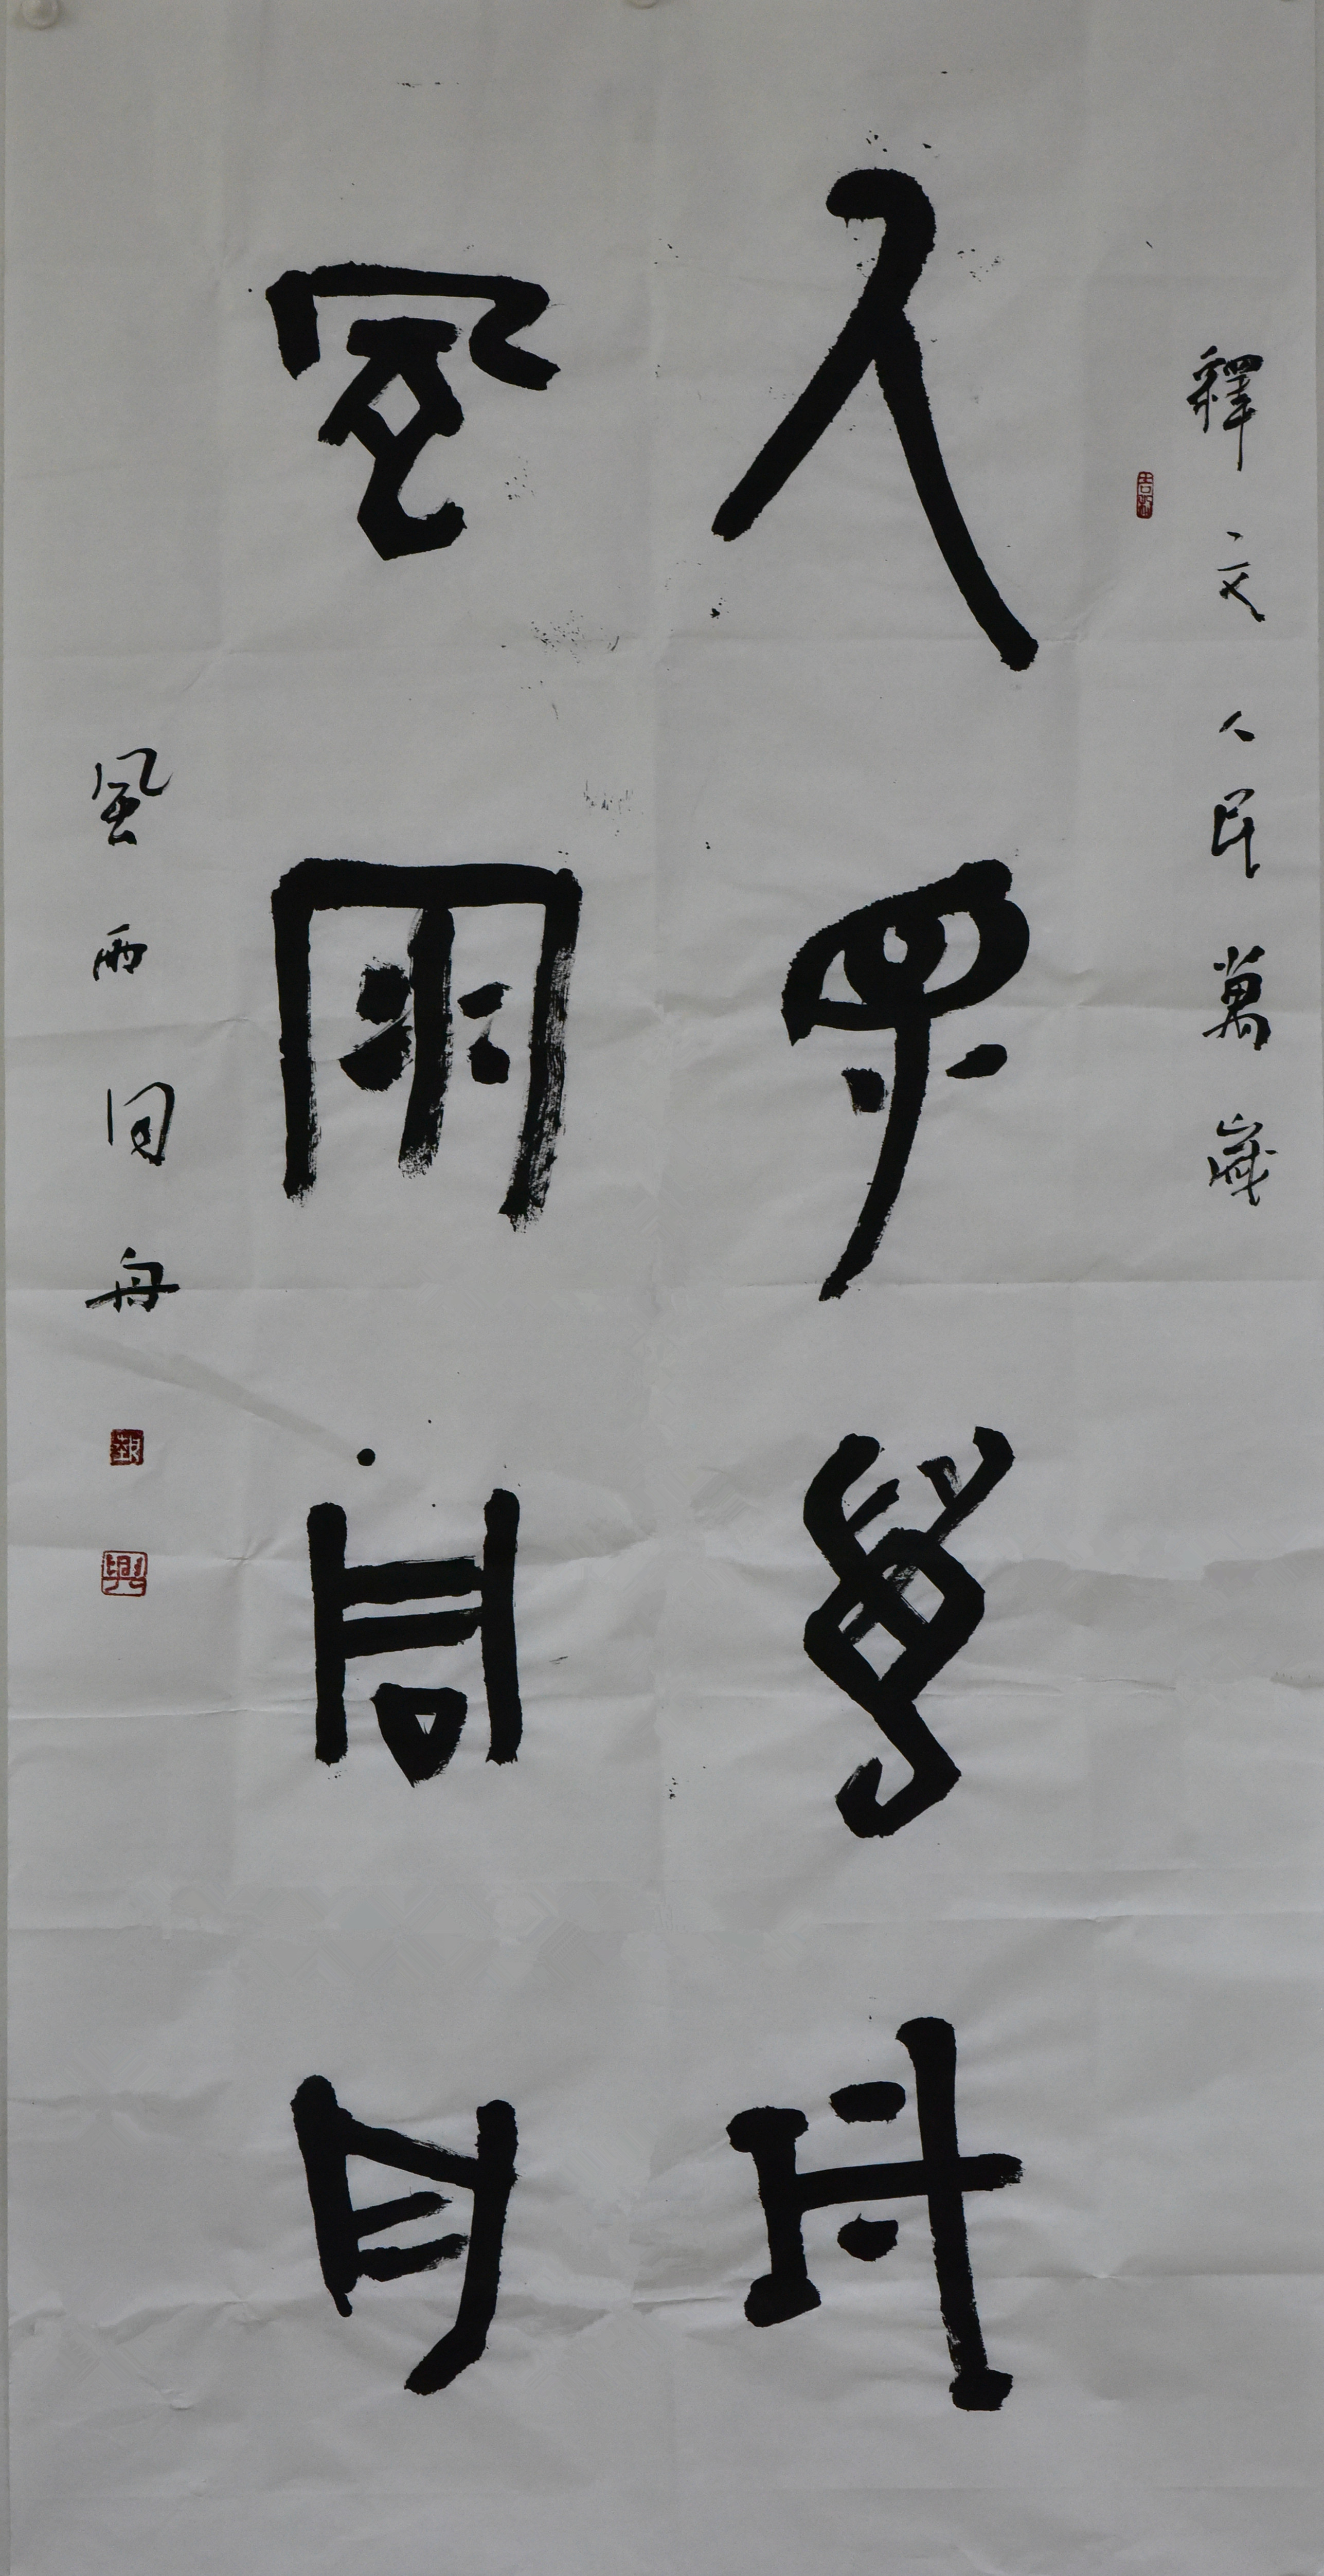 釋文人民萬歲
人民萬歲
風雨同舟
風雨同舟